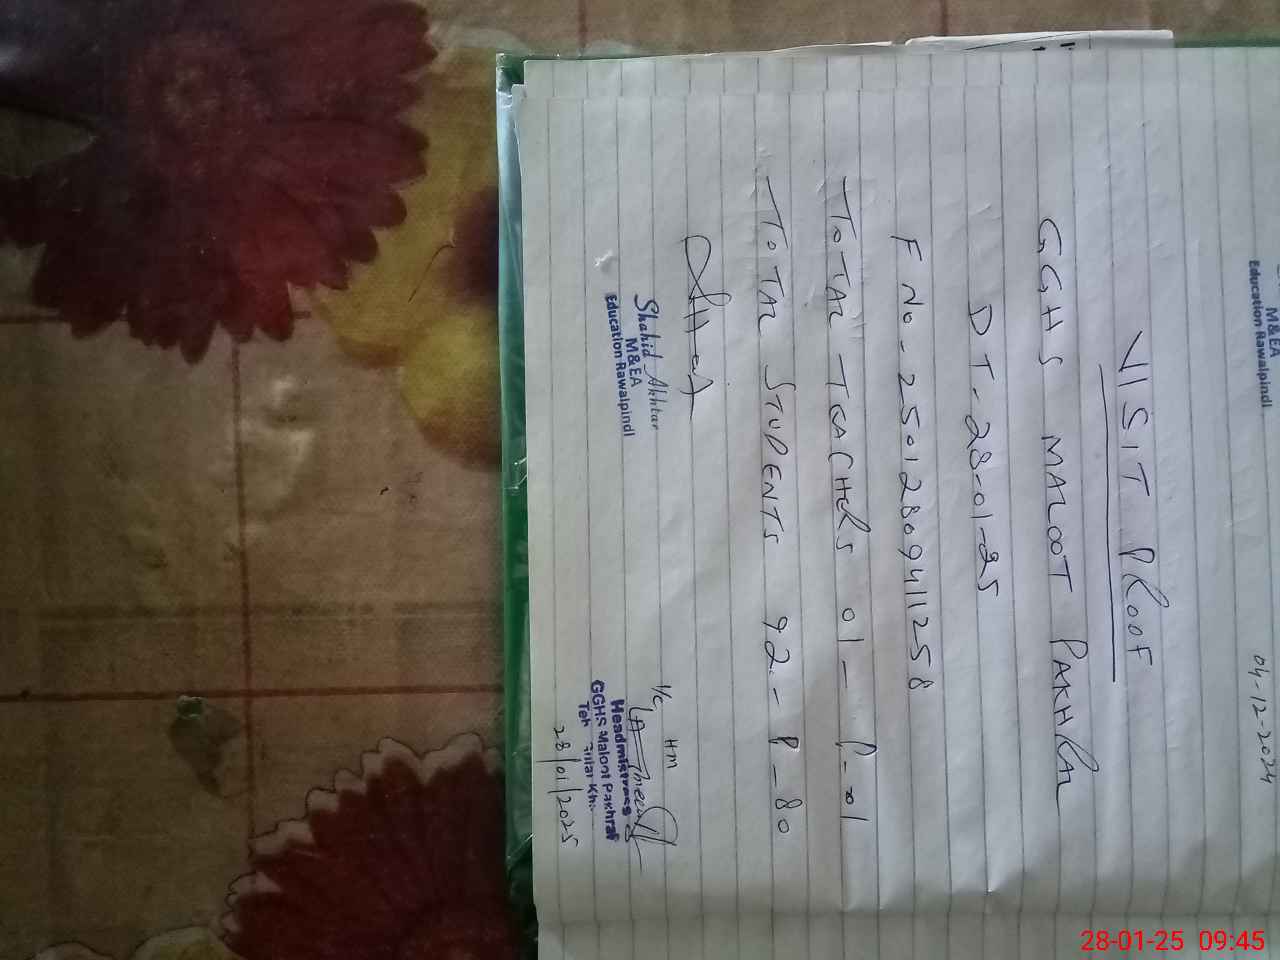 M&EA
Education Rawalpindi
04-12-2024
VISIT PROOF
GGHS MALOOT PAKHRAL
DT-28-01-25
F No-25012809411258
TOTAL TEACHERS 01-P-01
TOTAL STUDENTS 92-P-80
Shahid Akhtar
M&EA
Education Rawalpindi
I/C HM
Headmistress
GGHS Maloot Pakhral
Teh
28/01/2025
28-01-25 09:45